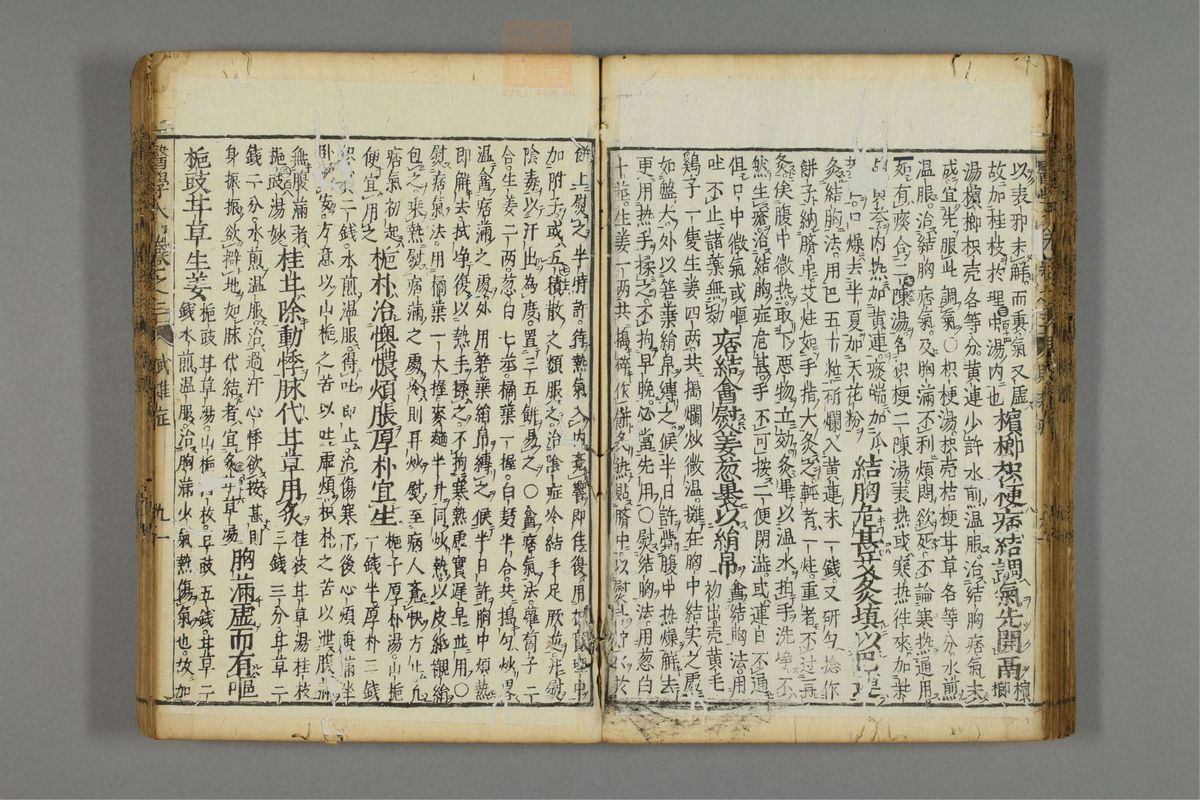 以表邪未解而裏氣又虛
故加桂枝於理中湯内也 檳榔枳梗痞結調氣先開鬲 檳榔
湯檳榔枳壳各等分黄連少許水煎温服治結胸痞氣未
成宜先服此調氣〇枳梗湯枳壳桔梗甘草各等分水煎
温服治結胸痞氣及胸滿不利煩悶欲死不論寒熱通用
如有痰合二陳湯名枳梗二陳湯表熱或寒熱徃來加柴
内熱加黄連痰喘加瓜
口燥去半夏加天花粉 結胸危甚炎灸填以巴連
灸結胸法用巴豆十粒研爛入黄連末一錢又研匀捻作
餅子納臍中艾炷如手指大灸之輕者一炷重者不過三
灸俟腹中微熱取下惡物立効灸畢以温水拭手洗淨不
然生瘡治結胸症危甚手不可按二便閉澁或連自不通
但口中微氣或嘔
吐不止諸藥無効 痞結罨熨姜葱裹以絹帛 罨結胸法用
初出壳黄毛
鷄子一隻生姜四两共搗爛炒微温攤在胸中結实之處
如盤大外以箬葉絹帛縛之候半日許覺腹中熱燥解去
更用熱手揉之不拘早晚必當先用〇熨結胸法用葱白
十莖生姜一两共搗碎作餅炙熱貼臍中以熨斗
餅上熨之半時許待熱氣入内覺響即住復用
加附子或五積散之類服之治陰症冷結手足厥逆
陰毒以汗出為度置二三五餅易之〇罨痞氣法蘿蔔子二
合生姜二两葱白七莖橘葉一握白麪半合共搗匀炒畧
温罨痞滿之處外用箬葉絹帛縛之候半日許胸中煩熱
即解去拭淨復以熱手揉之不拘寒熱虛實遲早並用〇
熨痞氣法用橘葉一大握麥麵半升同炒熱以皮紙襯絹
包之乘熱熨痞滿之處冷則再炒熨至病人覺快方止凡
痞氣初起
便宜用之 梔朴治懊憹煩脹厚朴宜生 梔子厚朴湯山梔
一錢半厚朴三錢
枳壳二錢水煎温服得吐即止治傷寒下後心煩腹滿坐
卧不安方意以山梔之苦以吐虛煩枳朴之苦以泄腹滿
無腹滿者
梔豉湯妙 桂甘除動悸脉代甘草用炙 桂枝甘草湯桂枝
三錢三分甘草二
錢二分水煎温服治過汗心悸欲按甚則
身振振欲擗地如脉代結者宜炙甘草湯 胸滿虛而有嘔
梔豉甘草生姜 梔豉甘草湯山梔四枚豆豉五錢甘草二
錢水煎温服治胸滿少氣熱傷氣也故加
醫學入門卷之三 傷寒雜症 九一